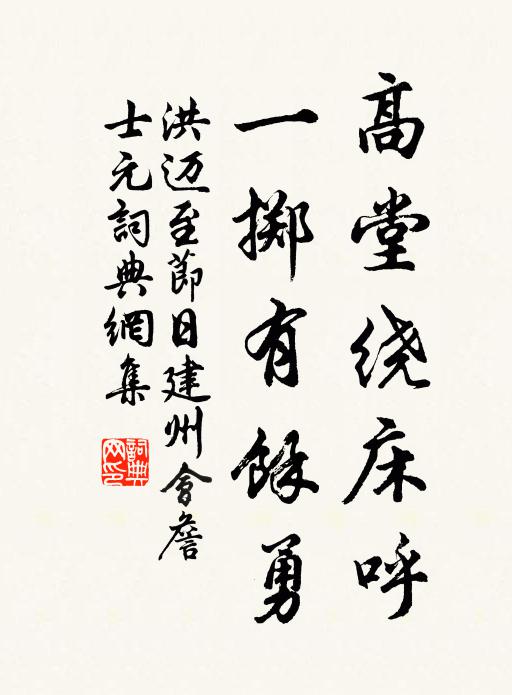 高堂绕床呼
一掷有餘勇
洪迈至節日建州會詹
士元詞典網集
詞典网印